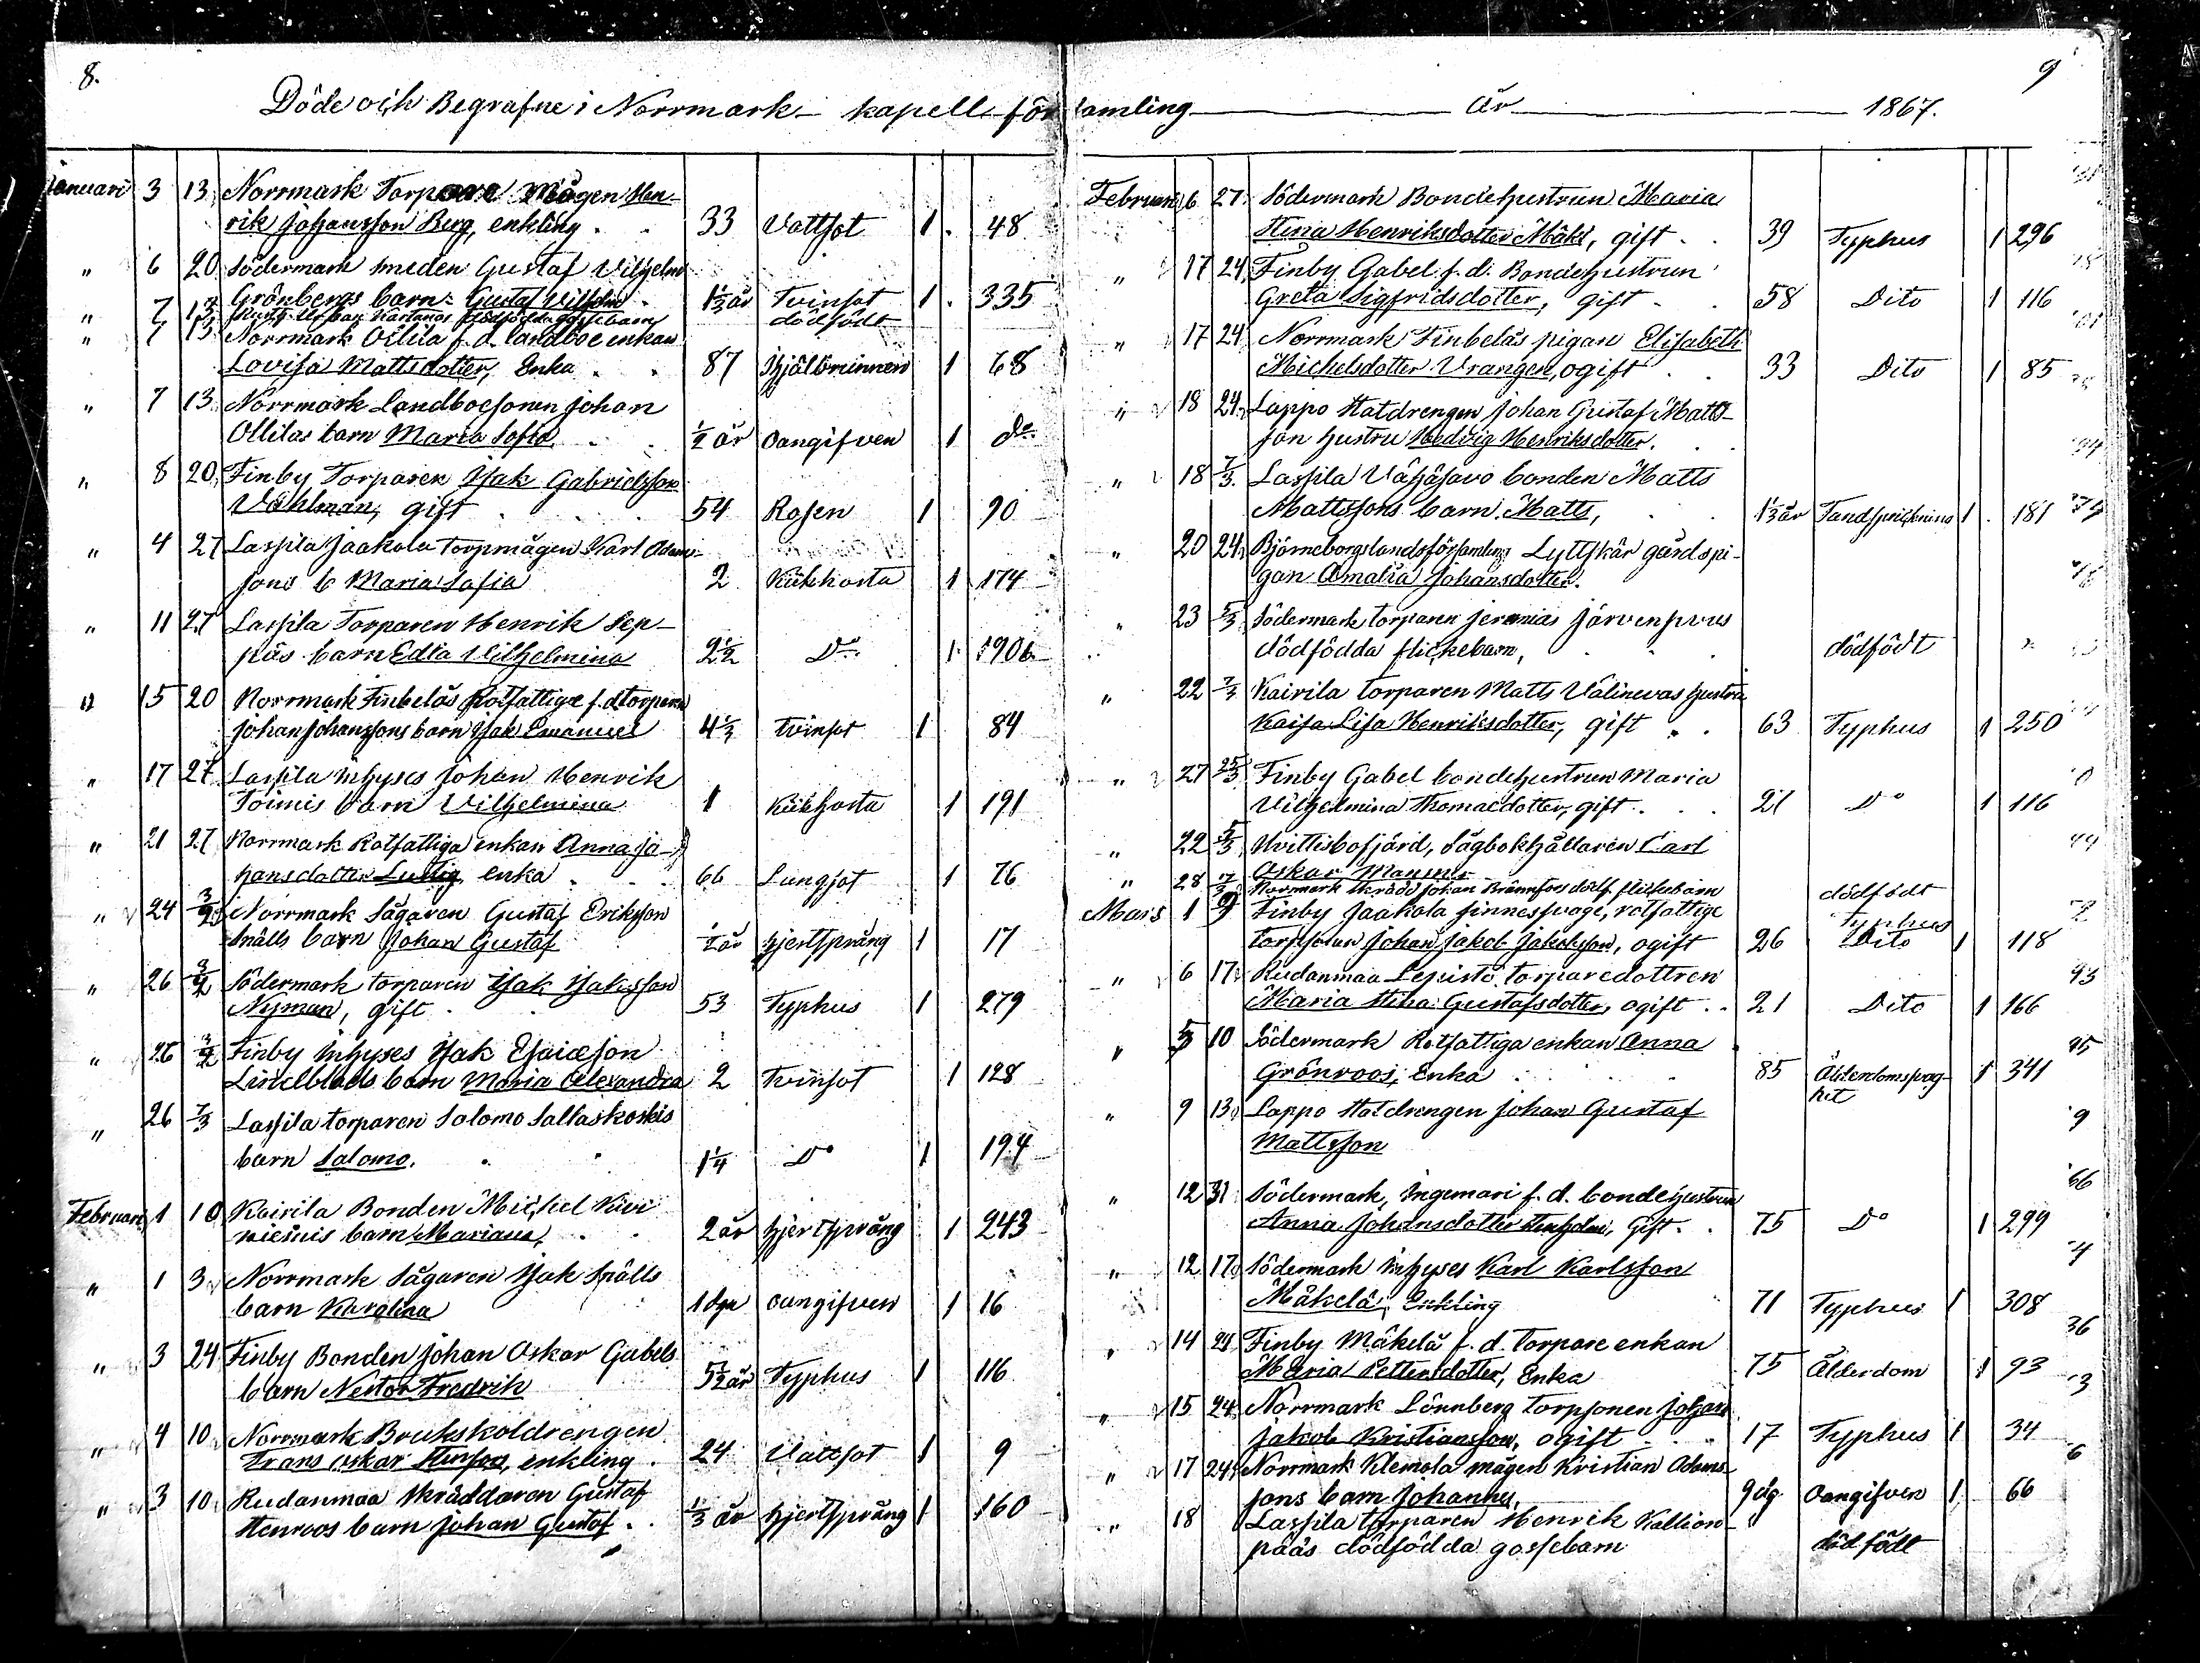 8.
Döde och Begrafne i Norrmark kapell för
Januari 3 13 Norrmark Torpare Mågen Hen-
rik Johansson Berg, enkling . . 33 Vattsot 1 . 48
" 6 20 Södermark smeden Gustaf Vilhelm
Grönbergs barn Gustaf Vilhelm . 1 1/3 år Tvinsot 1 . 335
" 7 13 dödfödt
" 7 13 Norrmark Ollila f. d. landboe enkan
Lovisa Mattsdotter, Enka . . 87 1 68
" 7 13 Norrmark Landboesonen Johan
Ollilas barn Maria Sofia . . 1/2 år oangifven 1 do
" 8 20 Finby Torparen Isak Gabrielsson
Vahlman, gift . . . 54 Rosen 1 90
" 4 27 Lassila Jaakola torpmågen Karl Adams-
sons b Maria Sofia 2 Kikhosta 1 174
" 11 27 Lassila Torparen Henrik Sep-
päs barn Edla Vilhelmina 2 1/2 Do 1 190b
" 15 20 Norrmark Finbeläs Rotfattige f.d torparen
Johan Johanssons barn Isak Emanuel 4 1/3 tvinsot 1 84
" 17 27 Lassila inhyses Johan Henrik
Toimis barn Vilhelmina 1 Kikhosta 1 191
" 21 27 Norrmark Rotfattiga enkan Anna Jo-
hansdotter Lustig, enka . . 66 Lungsot 1 76
" 24 3/2 Norrmark Sågaren Gustaf Eriksson
Snälls barn Johan Gustaf 1/2 år hjertsprång 1 17
" 26 3/2 Södermark torparen Isak Isaksson
Nyman, gift . . 53 Typhus 1 279
" 26 3/2 Finby inhyses Isak Esaiæson
Lindelblads barn Maria Alexandra 2 Tvinsot 1 128
" 26 7/3 Lassila torparen Salomo Sallaskoskis
barn Salomo. . . 1 1/4 Do 1 194
Februari 1 10 Kairila Bonden Michel Kivi
niemis barn Mariana, . . 2 år hjertsprång 1 243
" 1 3 Norrmark Sågaren Isak Snälls
barn Karolina 1 dga oangifven 1 16
" 3 24 Finby Bonden Johan Oskar Gabels
barn Nestor Fredrik 5 1/2 år Typhus 1 116
" 4 10 Norrmark Brukskoldrengen
Frans Oskar Stenfors, enkling . 24 Vattsot 1 9
" 3 10 Rudanmaa skräddaren Gustaf
Stenroos barn Johan Gustaf . . 1/3 år hjertsprång 1 160
9
samling År 1867.
Februari 6 27 Södermark Bondehustrun Maria
Stina Henriksdotter Mäki, gift . . 39 Typhus 1 296
" 17 24 Finby Gabel f. d. Bondehustrun
Greta Sigfridsdotter, gift . 58 Dito 1 116
" 17 24 Norrmark Finbeläs pigan Elisabeth
Michelsdotter Vrangen, ogift . . 33 Dito 1 85
" 18 24 Lappo Statdrengen Johan Gustaf Matts-
son hustru Hedvig Henriksdotter. . .
" 18 7/3 Lassila Vähäsavo bonden Matts
Mattssons barn Matts, . . 1 1/3 år Tandsprickning 1 . 181
" 20 24 Björneborgslandsförsamling Lyttskär gårdspi-
gan Amalia Johansdotter.
" 23 5/3 Södermark torparen Jeremias Järvenpäus
dödfödda flickebarn, . . dödfödt "
" 22 7/3 Kairila torparen Matts Välinevas hustru
Kaisa Lisa Henriksdotter, gift . . 63 Typhus 1 250
" 27 25/3 Finby Gabel bondehustrun Maria
Vilhelmina Thomasdotter, gift . . 21 Do 1 116
" 22 5/3 Hvittisbofjärd, Sågbokhållaren Carl
Oskar
" 28 17/3 Norrmark Skrädd Johan Brännfors dödf. flickebarn dödfödt
Mars 1 9 Finby Jaakola finnesvage, rotfattige Typhus
torpsonen Johan Jakob Jakobsson, ogift 26 Dito 1 118
" 6 17 Rudanmaa Lepistö torparedottren
Maria Stina Gustafsdotter, ogift . . 21 Dito 1 166
" 5 10 Södermark Rotfattiga enkan Anna
Grönroos, Enka . . . 85 Ålderdomssvag- 1 341
het
" 9 13 Lappo Statdrengen Johan Gustaf
Mattsson
" 12 31 Södermark, Ingemari f. d. bondehustrun
Anna Johansdotter, Gift . . 75 Do 1 299
" 12 17 Södermark inhyses Karl Karlsson
Mäkelä, Enkling 71 Typhus 1 308
" 14 24 Finby Mäkelä f. d. Torpare enkan
Maria Pettersdotter, Enka 75 Ålderdom 1 93
" 15 24 Norrmark Lönnberg torpsonen Johan
Jakob Kristiansson, ogift . . 17 Typhus 1 34
" 17 24 Norrmark Klemola mågen Kristian Adams-
sons barn Johannes, 9 dg. Oangifven 1 66
" 18 Lassila torparen Henrik Kallion-
pääs dödfödda gossebarn dödfödt